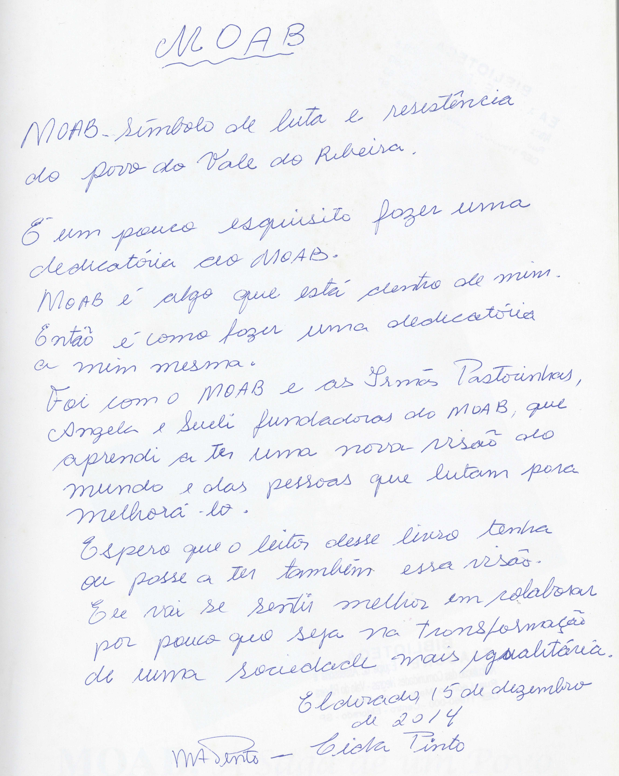 MOAB
MOAB - símbolo de luta e resistência
do povo do Vale do Ribeira.
É um pouco esquisito fazer uma
dedicatória ao MOAB.
MOAB é algo que está dentro de mim.
Então é como fazer uma dedicatória
a mim mesma.
Foi com o MOAB e as Irmãs Pastorinhas,
Angela e Sueli fundadoras do MOAB, que
aprendi a ter uma nova visão do
mundo e das pessoas que lutam para
melhorá-lo.
Espero que o leitor desse livro tenha
ou passe a ter também essa visão.
Ele vai se sentir melhor em colaborar
por pouco que seja na transformação
de uma sociedade mais igualitária.
Eldorado, 15 de dezembro
de 2014
MAPinto - Cida Pinto
MOAB